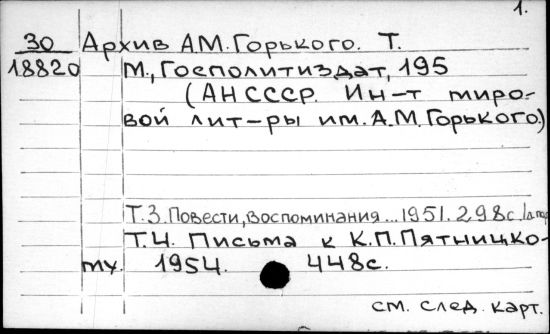 1.
30 Архив А.М.Горького. Т.
18820 М., Госполитиздат, 195
(АН СССР. Ин-т миро-
вой лит-ры им. А.М.Горького.)
Т.3. Повести, воспоминания... 1951. 298с.
Т.4. Письма к К.П.Пятницко-
му. 1954. 448с.
см. след. карт.